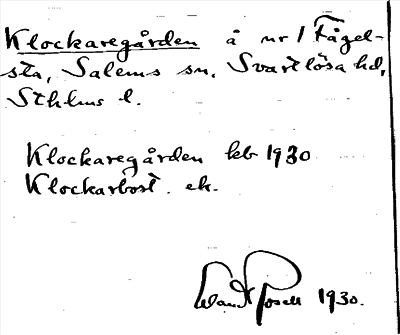 Klockaregården å nr 1 Fågel-
sta, Salems sn, Svartlösa hd,
Sthlms l.
Klockaregården leb 1930
Klockarbost. ek.
1930.